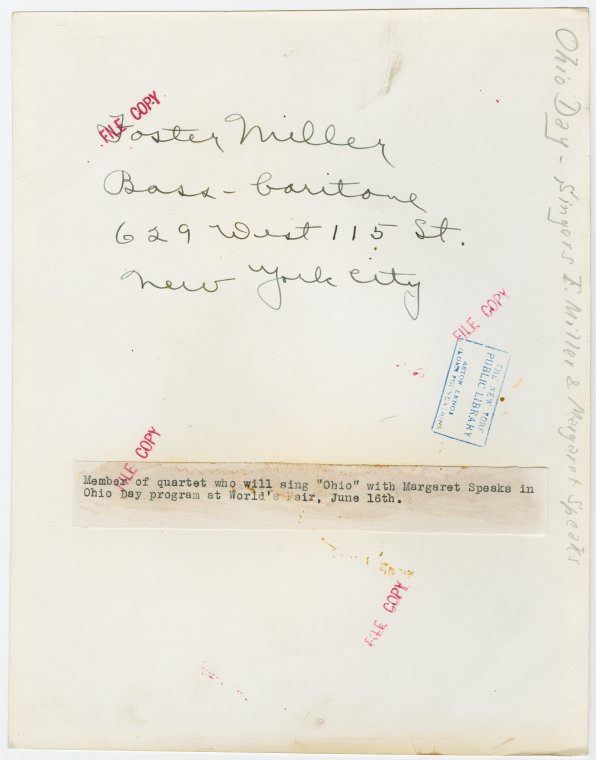 Foster Miller
Bass-baritone
629 West 115 St.
New York City
FILE COPY
FILE COPY
THE NEW YORK
PUBLIC LIBRARY
ASTOR LENOX
FILE COPY
Member of quartet who will sing "Ohio" with Margaret Speaks in
Ohio Day program at World's Fair, June 16th.
FILE COPY
Ohio Day - Singers F. Miller & Margaret Speaks